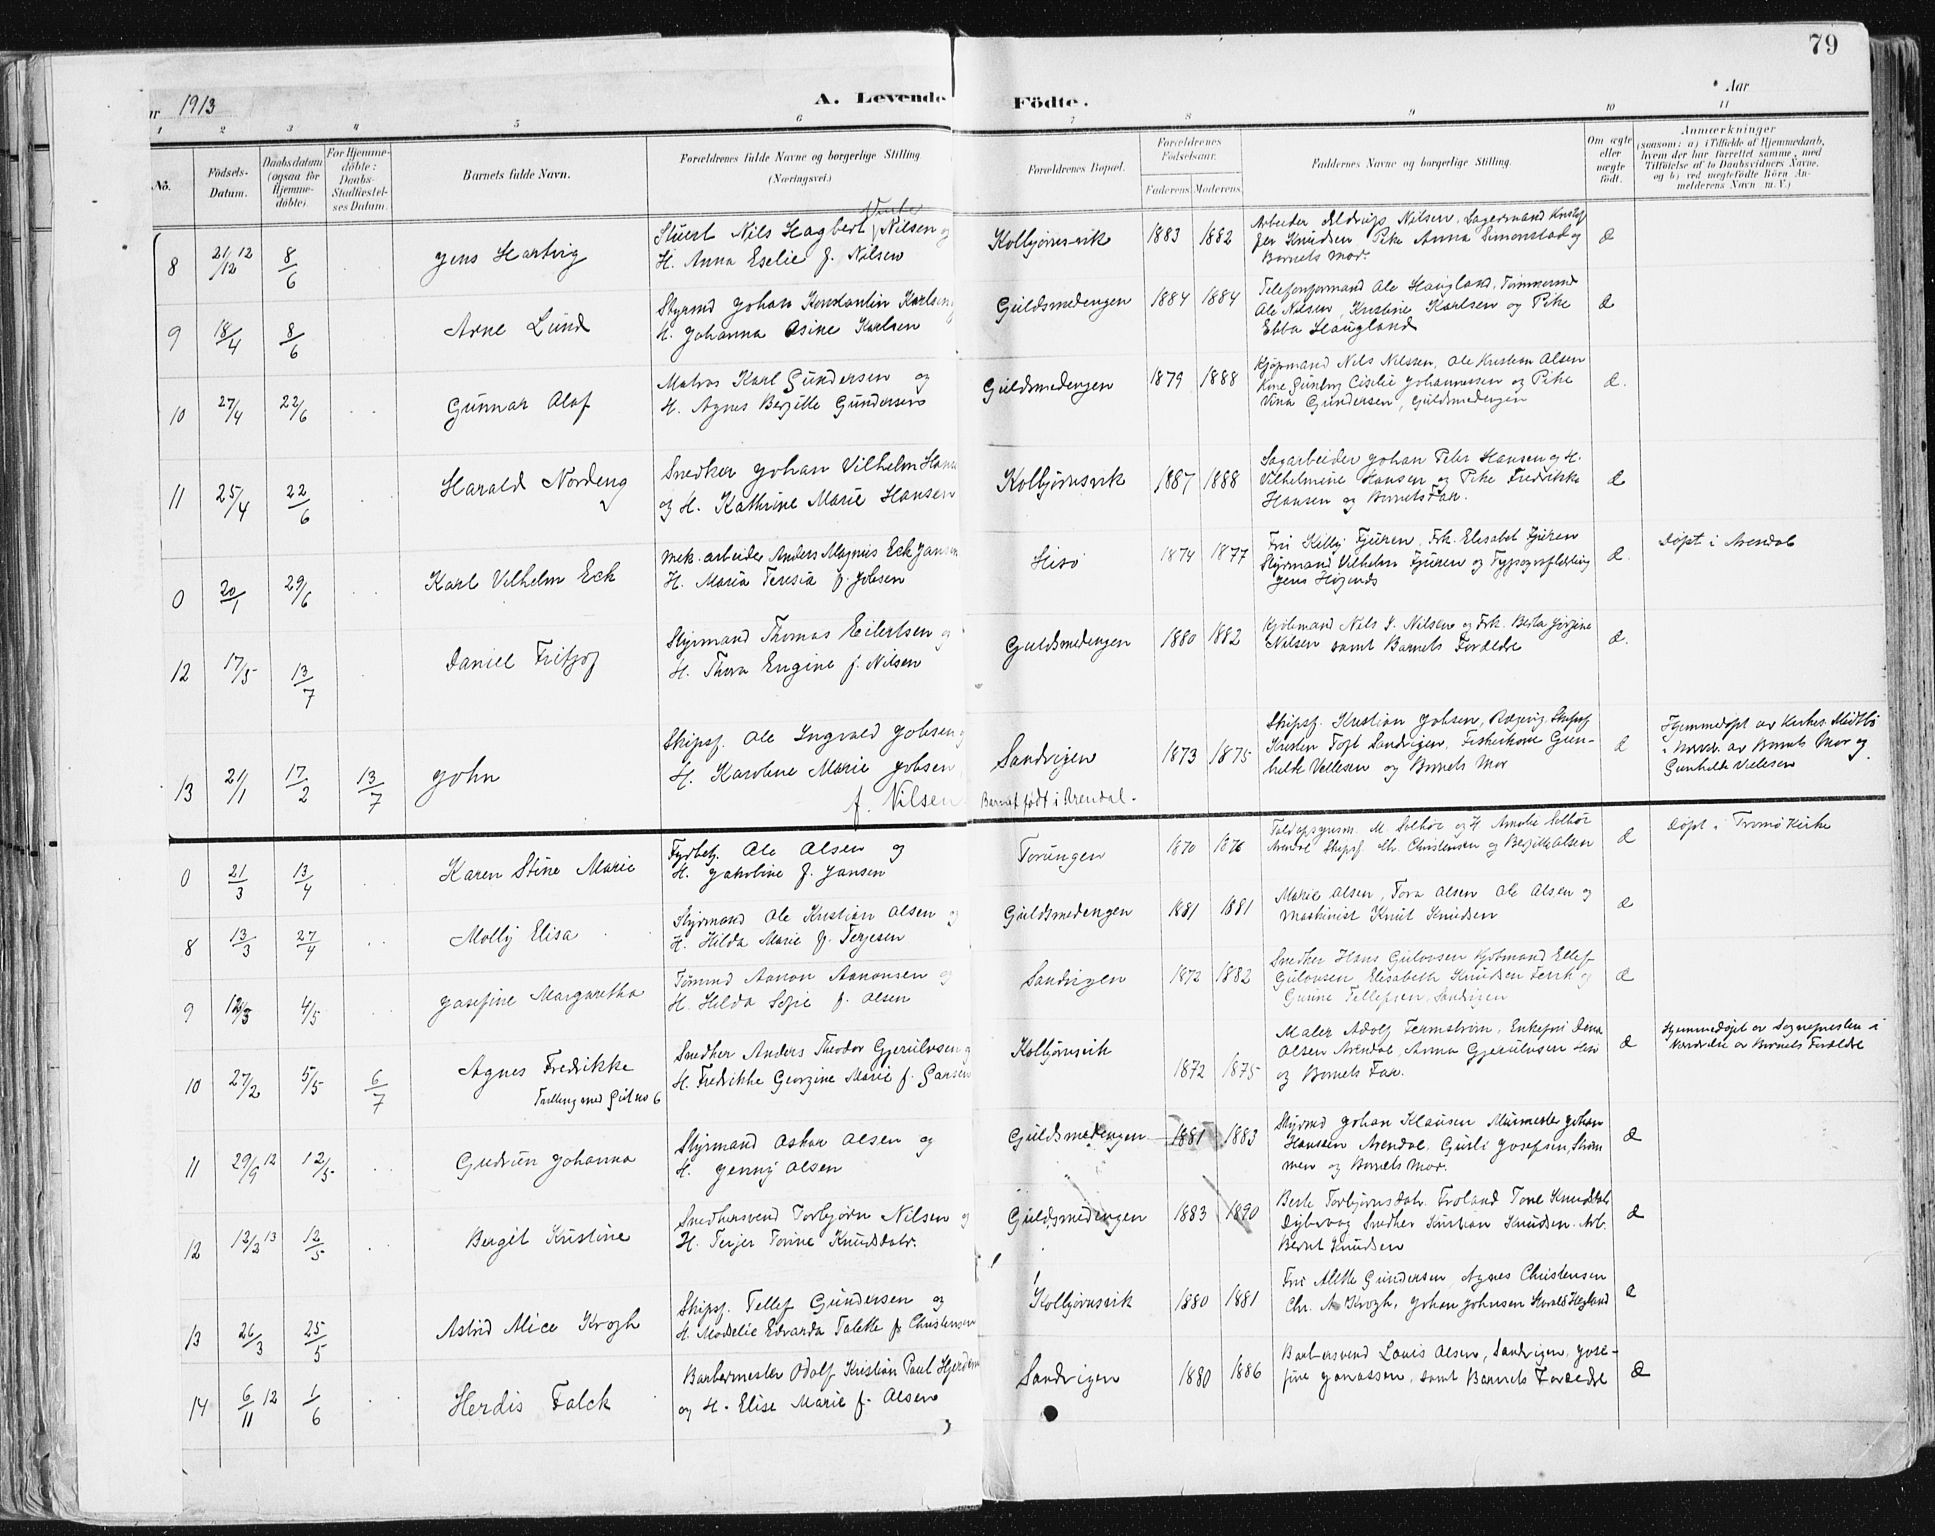 79
Aar 1913
A. Levende Födte.
Aar
1 2 3 4 5 6 7 8 9 10 11
No.
Födsels-Datum.
Daabsdatum (ogsaa for Hjemmedöbte)
For Hjemmedöbte: Daabs-Stadfæstelses Datum.
Barnets fulde Navn.
Forældrenes fulde Navne og borgerlige Stilling (Næringsvei.)
Forældrenes Bopæl.
Forældrenes Födselsaar.
Faderens. Moderens.
Faddernes Navne og borgerlig Stilling.
Om ægte eller uægte födt.
Anmærkninger
(saasom: a) i Tilfælde af Hjemmedaab, hvem der har forrettet samme, med Tilföielse af to Daabsvidners Navne, og b) ved uægtefödte Börn Anmelderens Navn m. V.)
8 21/12 12 8/6 Jens Hartvig
Stuert Nils Hagbert Nilsen og
H. Anna Eselie f. Nilsen
Kolbjørnsvik 1883 1882
Arbeider Nilsen, Lagermand Kristof
fer Knudsen Pike Anna Simonstad og
Barnets Mor.
Æ
9 18/4 8/6 Arne Lund
Styrmd Johan Konstantin Karlsen
H. Johanna Osine Karlsen
Guldsmedengen 1884 1884
Telefonformand Ole Haugland, Tømmermd
Ole Nilsen, Kristine Karlsen og Pike
Ebba Haugland
Æ
10 27/4 22/6 Gunnar Olaf
Matros Karl Gundersen og
H. Agnes Bergitte Gundersen
Guldsmedengen 1879 1888
Kjøpmand Nils Nilssen, Ole Kristian Olsen
Kone Gunborg Ciselie Johannessen og Pike
Vina Gundersen, Guldsmedengen
Æ.
11 25/4 22/6 Harald Nordeng
Snedker Johan Vilhelm Hans
og H. Kathrine Marie Hansen
Kolbjørnsvik 1887 1888
Sagarbeider Johan Peter Hansen og H.
Vilhelmine Hansen og Pike Fredrikke
Hansen og Barnets Far.
Æ
0 20/1 29/6 Karl Vilhelm Eck
Mek. arbeider Anders Magnus Eck Jansen
H. Maria Teresia f. Jobsen
Hisø 1874 1877
Fru Kitty Fjuren, Frk. Elisabet Fjuren
Styrmand Vilhelm Fjuren og Typograflærling
Jens
Æ.
Døpt i Arendal
12 17/5 13/7 Daniel Fritjof
Styrmand Thomas Eilertsen og
H. Thora Engine f. Nilsen
Guldsmedengen 1880 1882
Kjøbmand Nils J. Nilsen og Frk. Berta Jørgine
Nilsen samt Barnets Forældre
Æ.
13 21/1 17/2 13/7 John
Skipsf. Ole Ingvald Jobsen
H. Karoline Marie Jobsen
f. Nilsen
Sandvigen 1873 1875
Barnet født i Arendal.
Skipsf. Kristian Jobsen, Rægevig, Skipsf
Kristen Foss Sandvigen, Fiskerkone Gun-
helde Vellesen og Barnets Mor
Æ
Hjemmedøpt av
i Nærvær. av Barnets Mor og
Gunhilde Vellesen
0 21/3 13/4 Karen Stine Marie
Fyrbetj. Ole Olsen og
H. Jakobine f. Jansen
Torungen 1870 187
M. Solhøi og H Amalie Solhøi
Arendal Skipsf. Christensen og Bergitte Olsen
Æ
Døpt i Tromø Kirke
8 13/3 27/4 Molly Elisa
Styrmand Ole Kristian Olsen og
H. Hilda Marie f. Terjesen
Guldsmedengen 1881 1881
Marie Olsen, Tora Olsen Ole Olsen og
Maskinist Knut Knudsen
Æ
9 12/3 4/5 Josefine Margaretha
Tømmd Aanon Aanonsen og
H. Hilda Sofie f. Olsen
Sandvigen 1872 1882
Snedker Hans Gulovsen Kjøbmand Ellef
Gulovsen, Elisabeth Knudsen og
Gurine Tellefsen, Sandvigen
Æ
10 27/2 5/5 6/7 Agnes Fredrikke
Tvilling med Gut no 6
Snedker Anders Theodor Gjerulvsen og
H. Fredrikke Georgine Marie f. Larsen
Kolbjørnsvik 1872 1875
Maler Adolf Fermstrøm, Enkefru Dina
Olsen Arendal, Anna Gjerulvsen Hisø
og Barnets Far.
Æ
Hjemmedøpt av Sognepresten i
Nærværelse av Barnets Forældre
11 29/9 12 12/5 Gudrun Johanna
Styrmand Oskar Olsen og
H. Jenny Olsen
Guldsmedengen 1881 1883
Styrmd Johan Klausen Murmester Johan
Hanssen Arendal, Gusli Josefsen, Strøm
men og Barnets Mor.
Æ
12 12/2 13 12/5 Bergit Kristine
Snedkersvend Torbjørn Nilsen og
H. Terjer Torine Knudsdatr.
Guldsmedengen 1883 1890
Berte Torbjørnsdatr. Froland Tone Knudsdatr
Dybvaag Snedker Kristian Knudsen Arb.
Bernt Knudsen
Æ
13 26/3 25/5 Astrid Alice Krogh
Skipsf. Tellef Gundersen og
H. Modselie Edvarda Talette f. Christensen
Kolbjørnsvik 1880 1881
Fru Alette Gundersen Agnes Christensen
Chr. A Krogh, Johan Johnsen Harald Hegland
Æ
14 6/11 12 1/6 Herdis Falck
Barbermester Odolf Kristian Paul
og H. Elise Marie f. Olsen
Sandvigen 1880 1886
Barbersvend Louis Olsen, Sandvigen, Jose-
fine Jonassen, samt Barnets Forældre
Æ